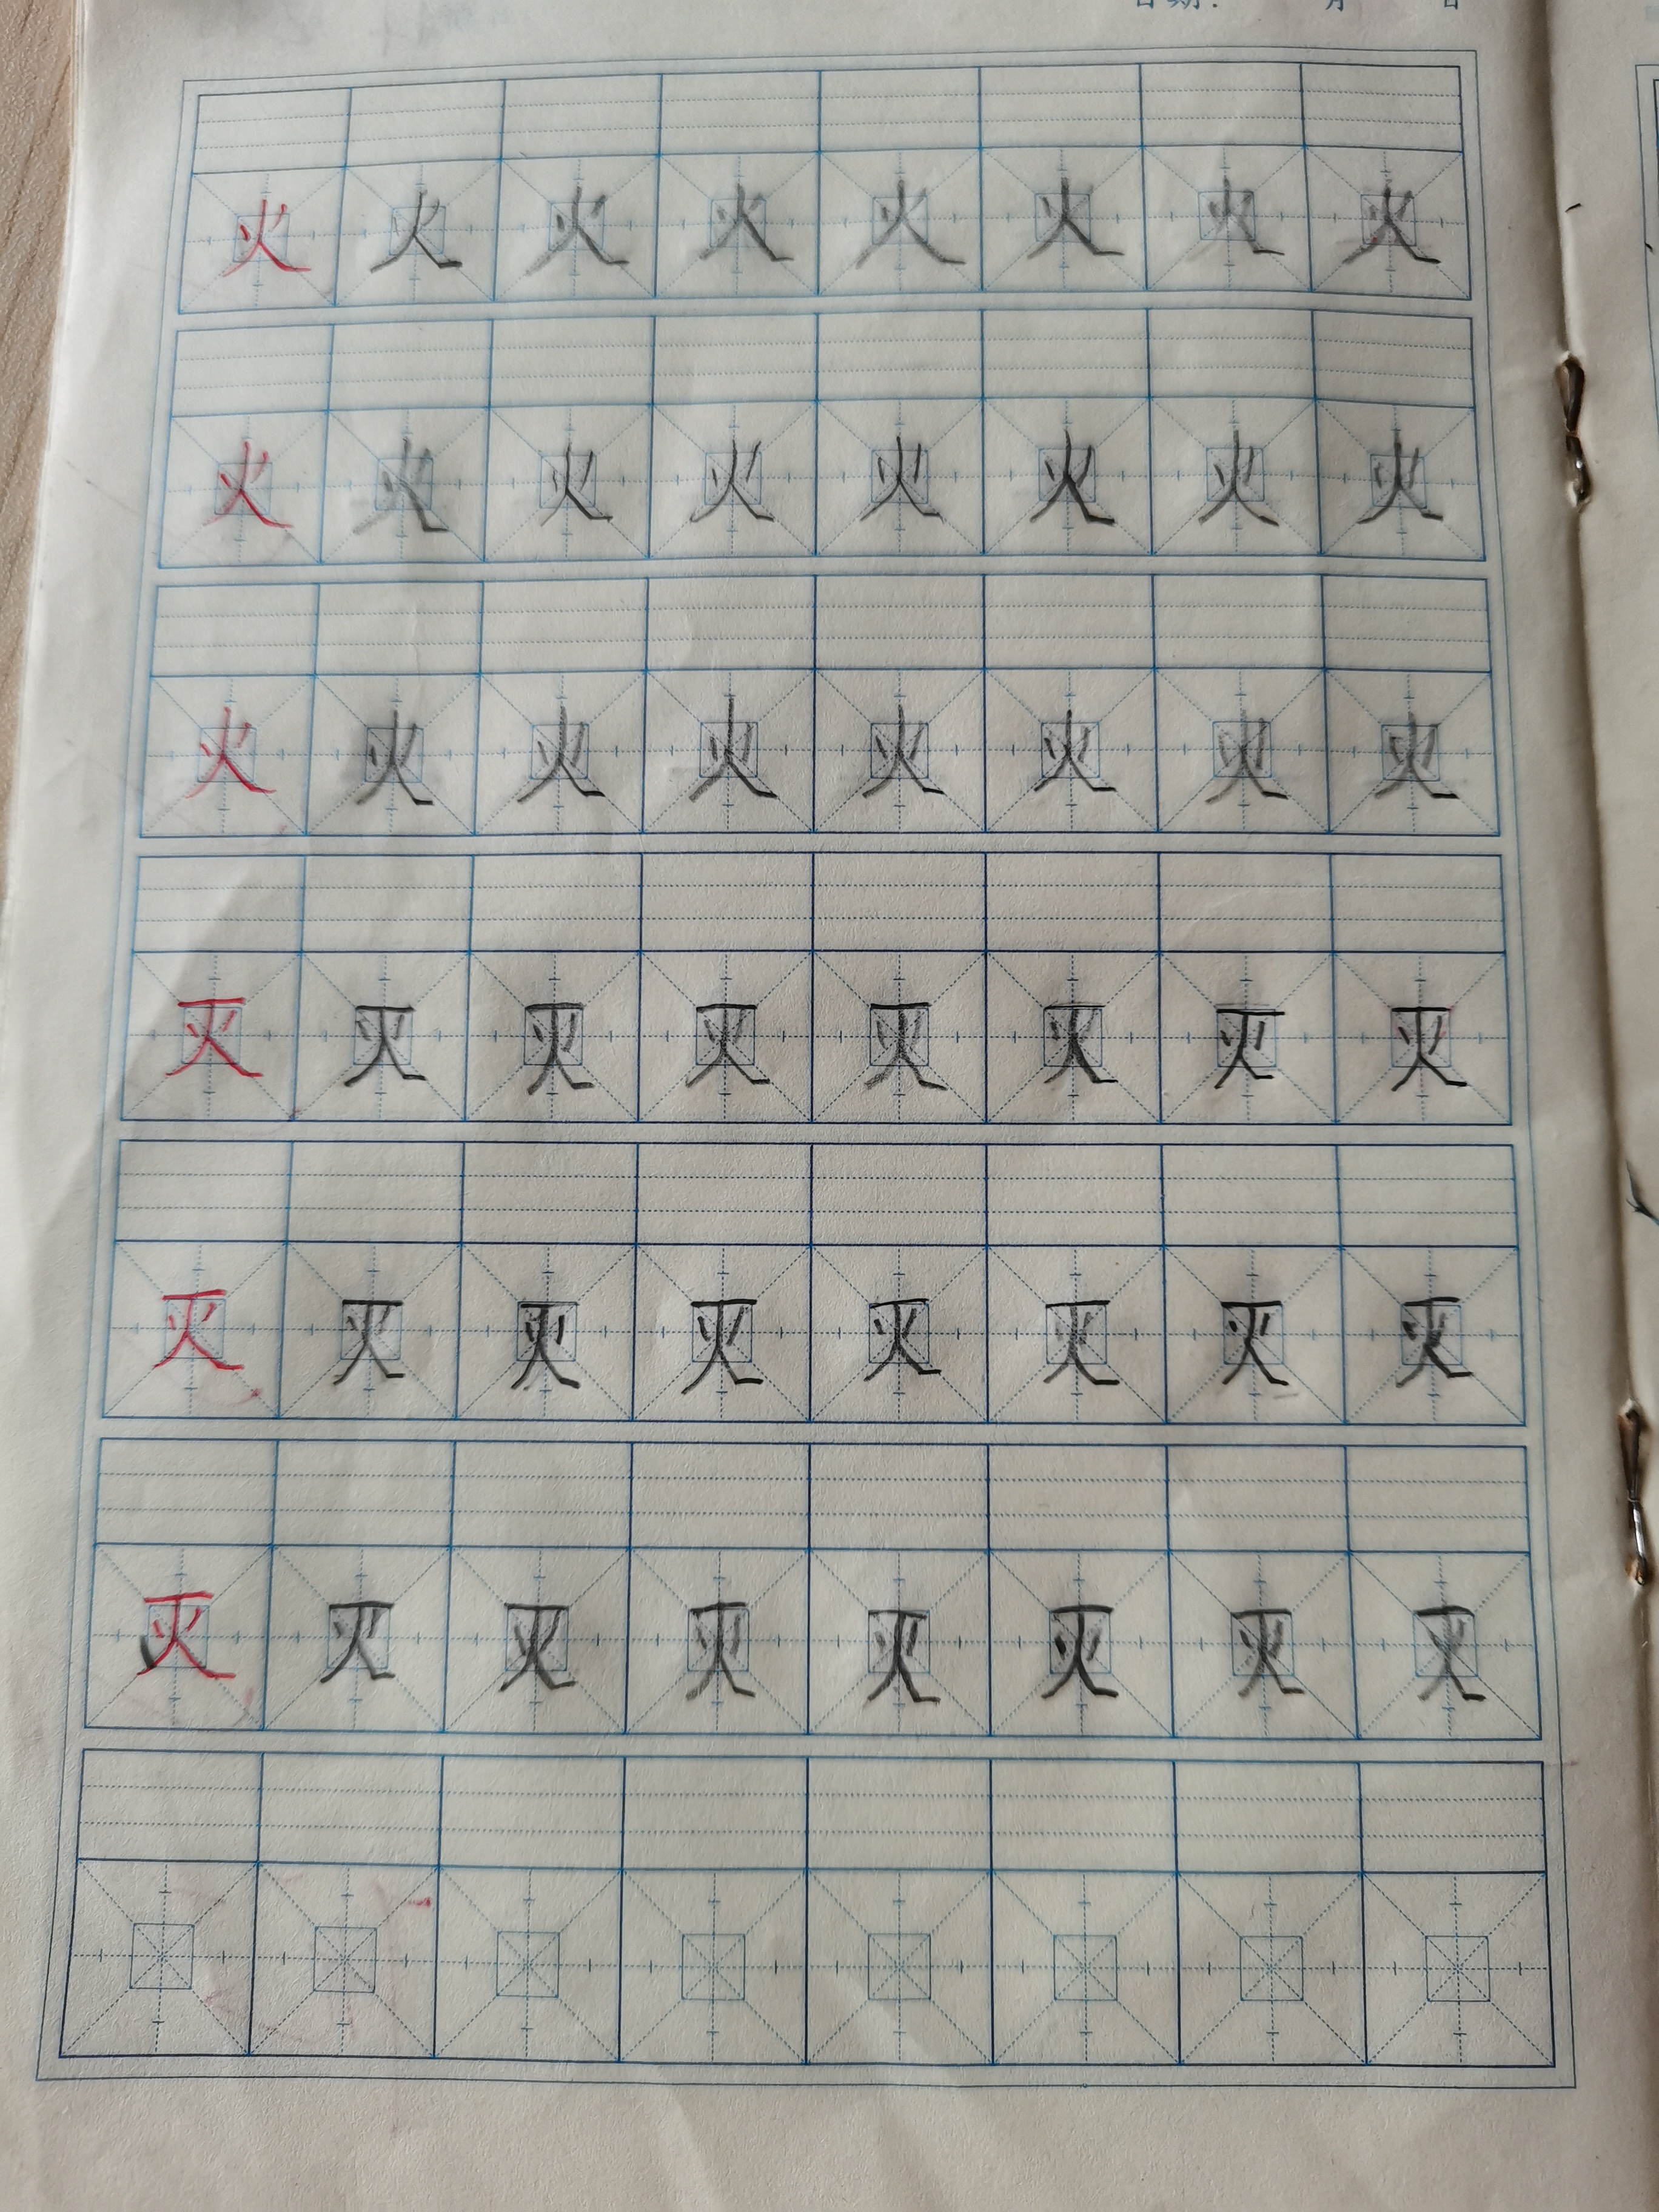 日期： 月 日
火 火 火 火 火 火 火 火
火 火 火 火 火 火 火 火
火 火 火 火 火 火 火 火
灭 灭 灭 灭 灭 灭 灭 灭
灭 灭 灭 灭 灭 灭 灭 灭
灭 灭 灭 灭 灭 灭 灭 灭